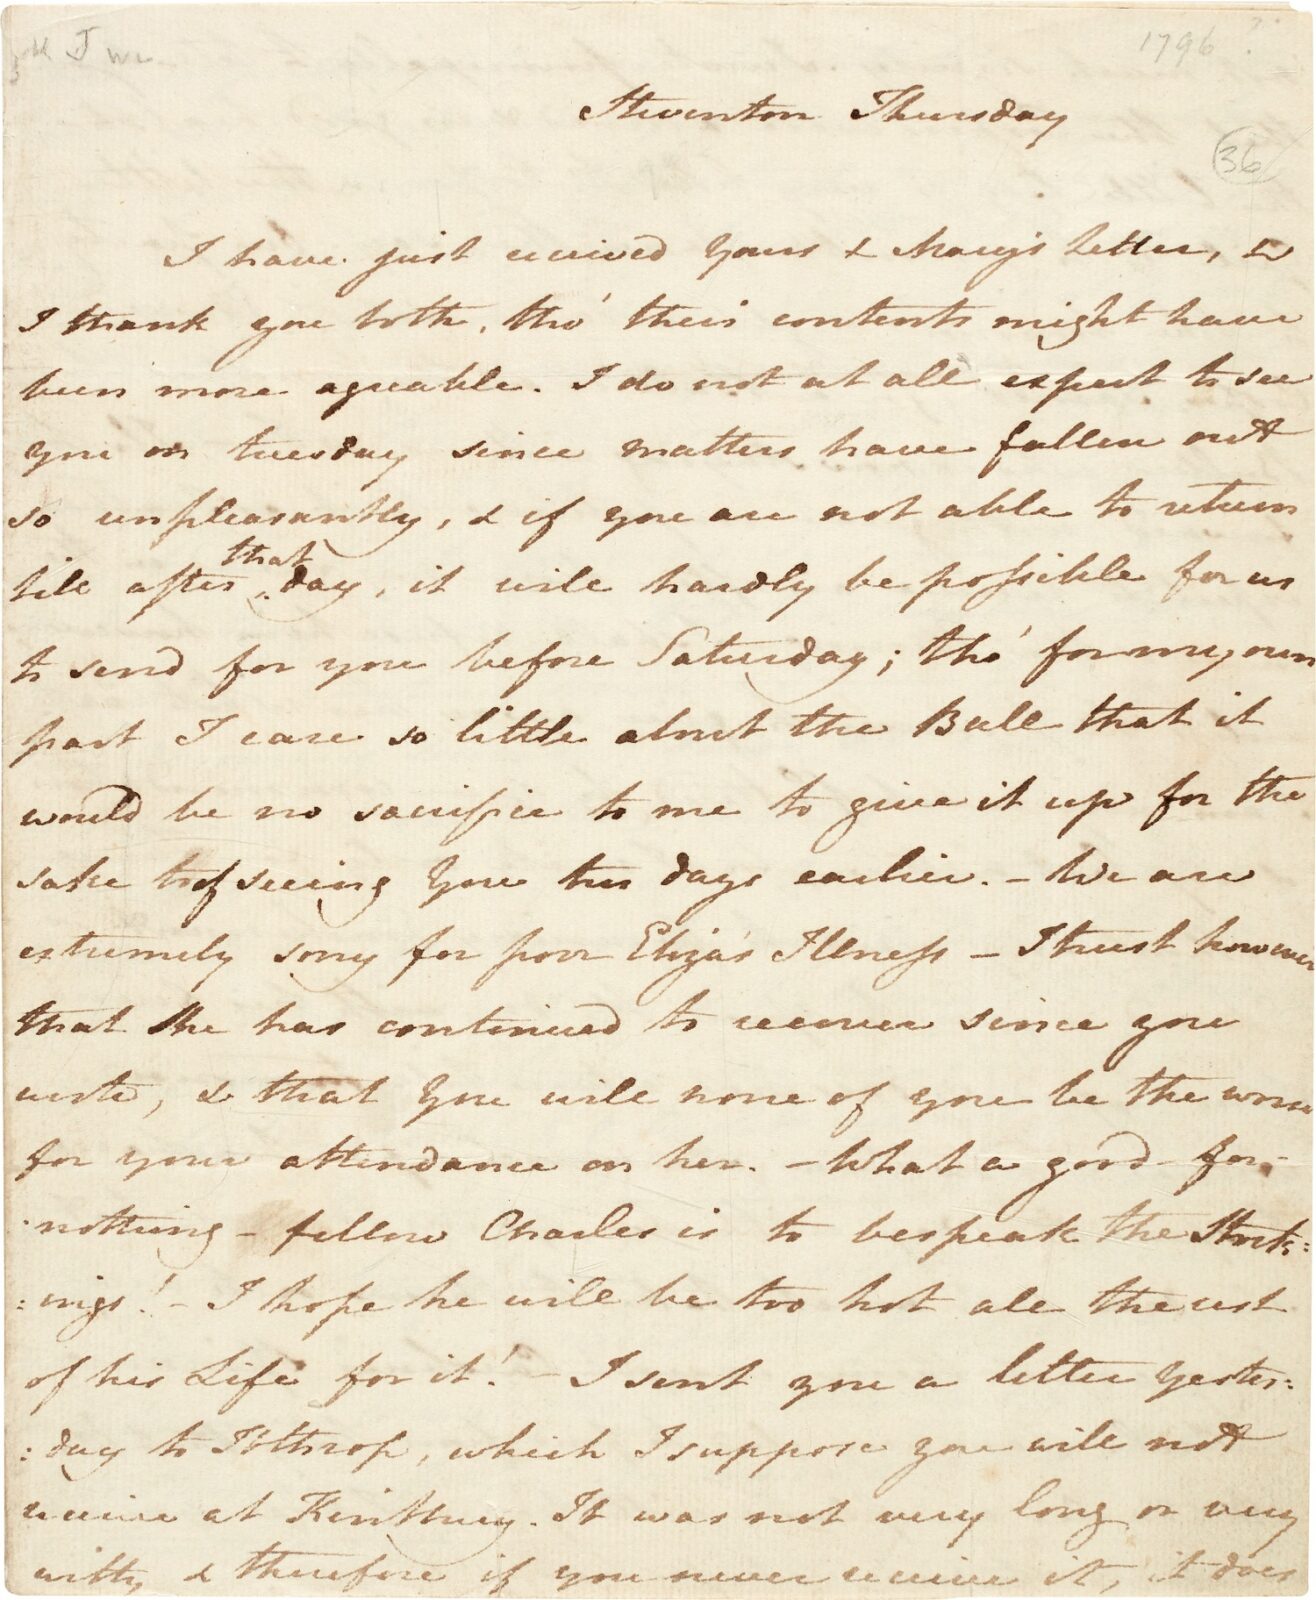 1796?
Steventon Thursday
36
I have just received yours & Mary's letter, &
I thank you both, tho' their contents might have
been more agreable. I do not at all expect to see
you on tuesday since matters have fallen out
so unpleasantly, & if you are not able to return
till after that day, it will hardly be possible for us
to send for you before Saturday; tho' for my own
part I care so little about the Ball that it
would be no sacrifice to me to give it up for the
sake of seeing you two days earlier. - We are
extremely sorry for poor Eliza's Illness - I trust however
that she has continued to recover since you
wrote, & that you will none of you be the worse
for your attendance on her. - What a good-for-
-nothing-fellow Charles is to bespeak the Stock:
:ings! - I hope he will be too hot all the rest
of his Life for it! - I sent you a letter Yester:
:day to Ibthrop, which I suppose you will not
receive at Kintbury. It was not very long or very
witty, & therefore if you never receive it, it does